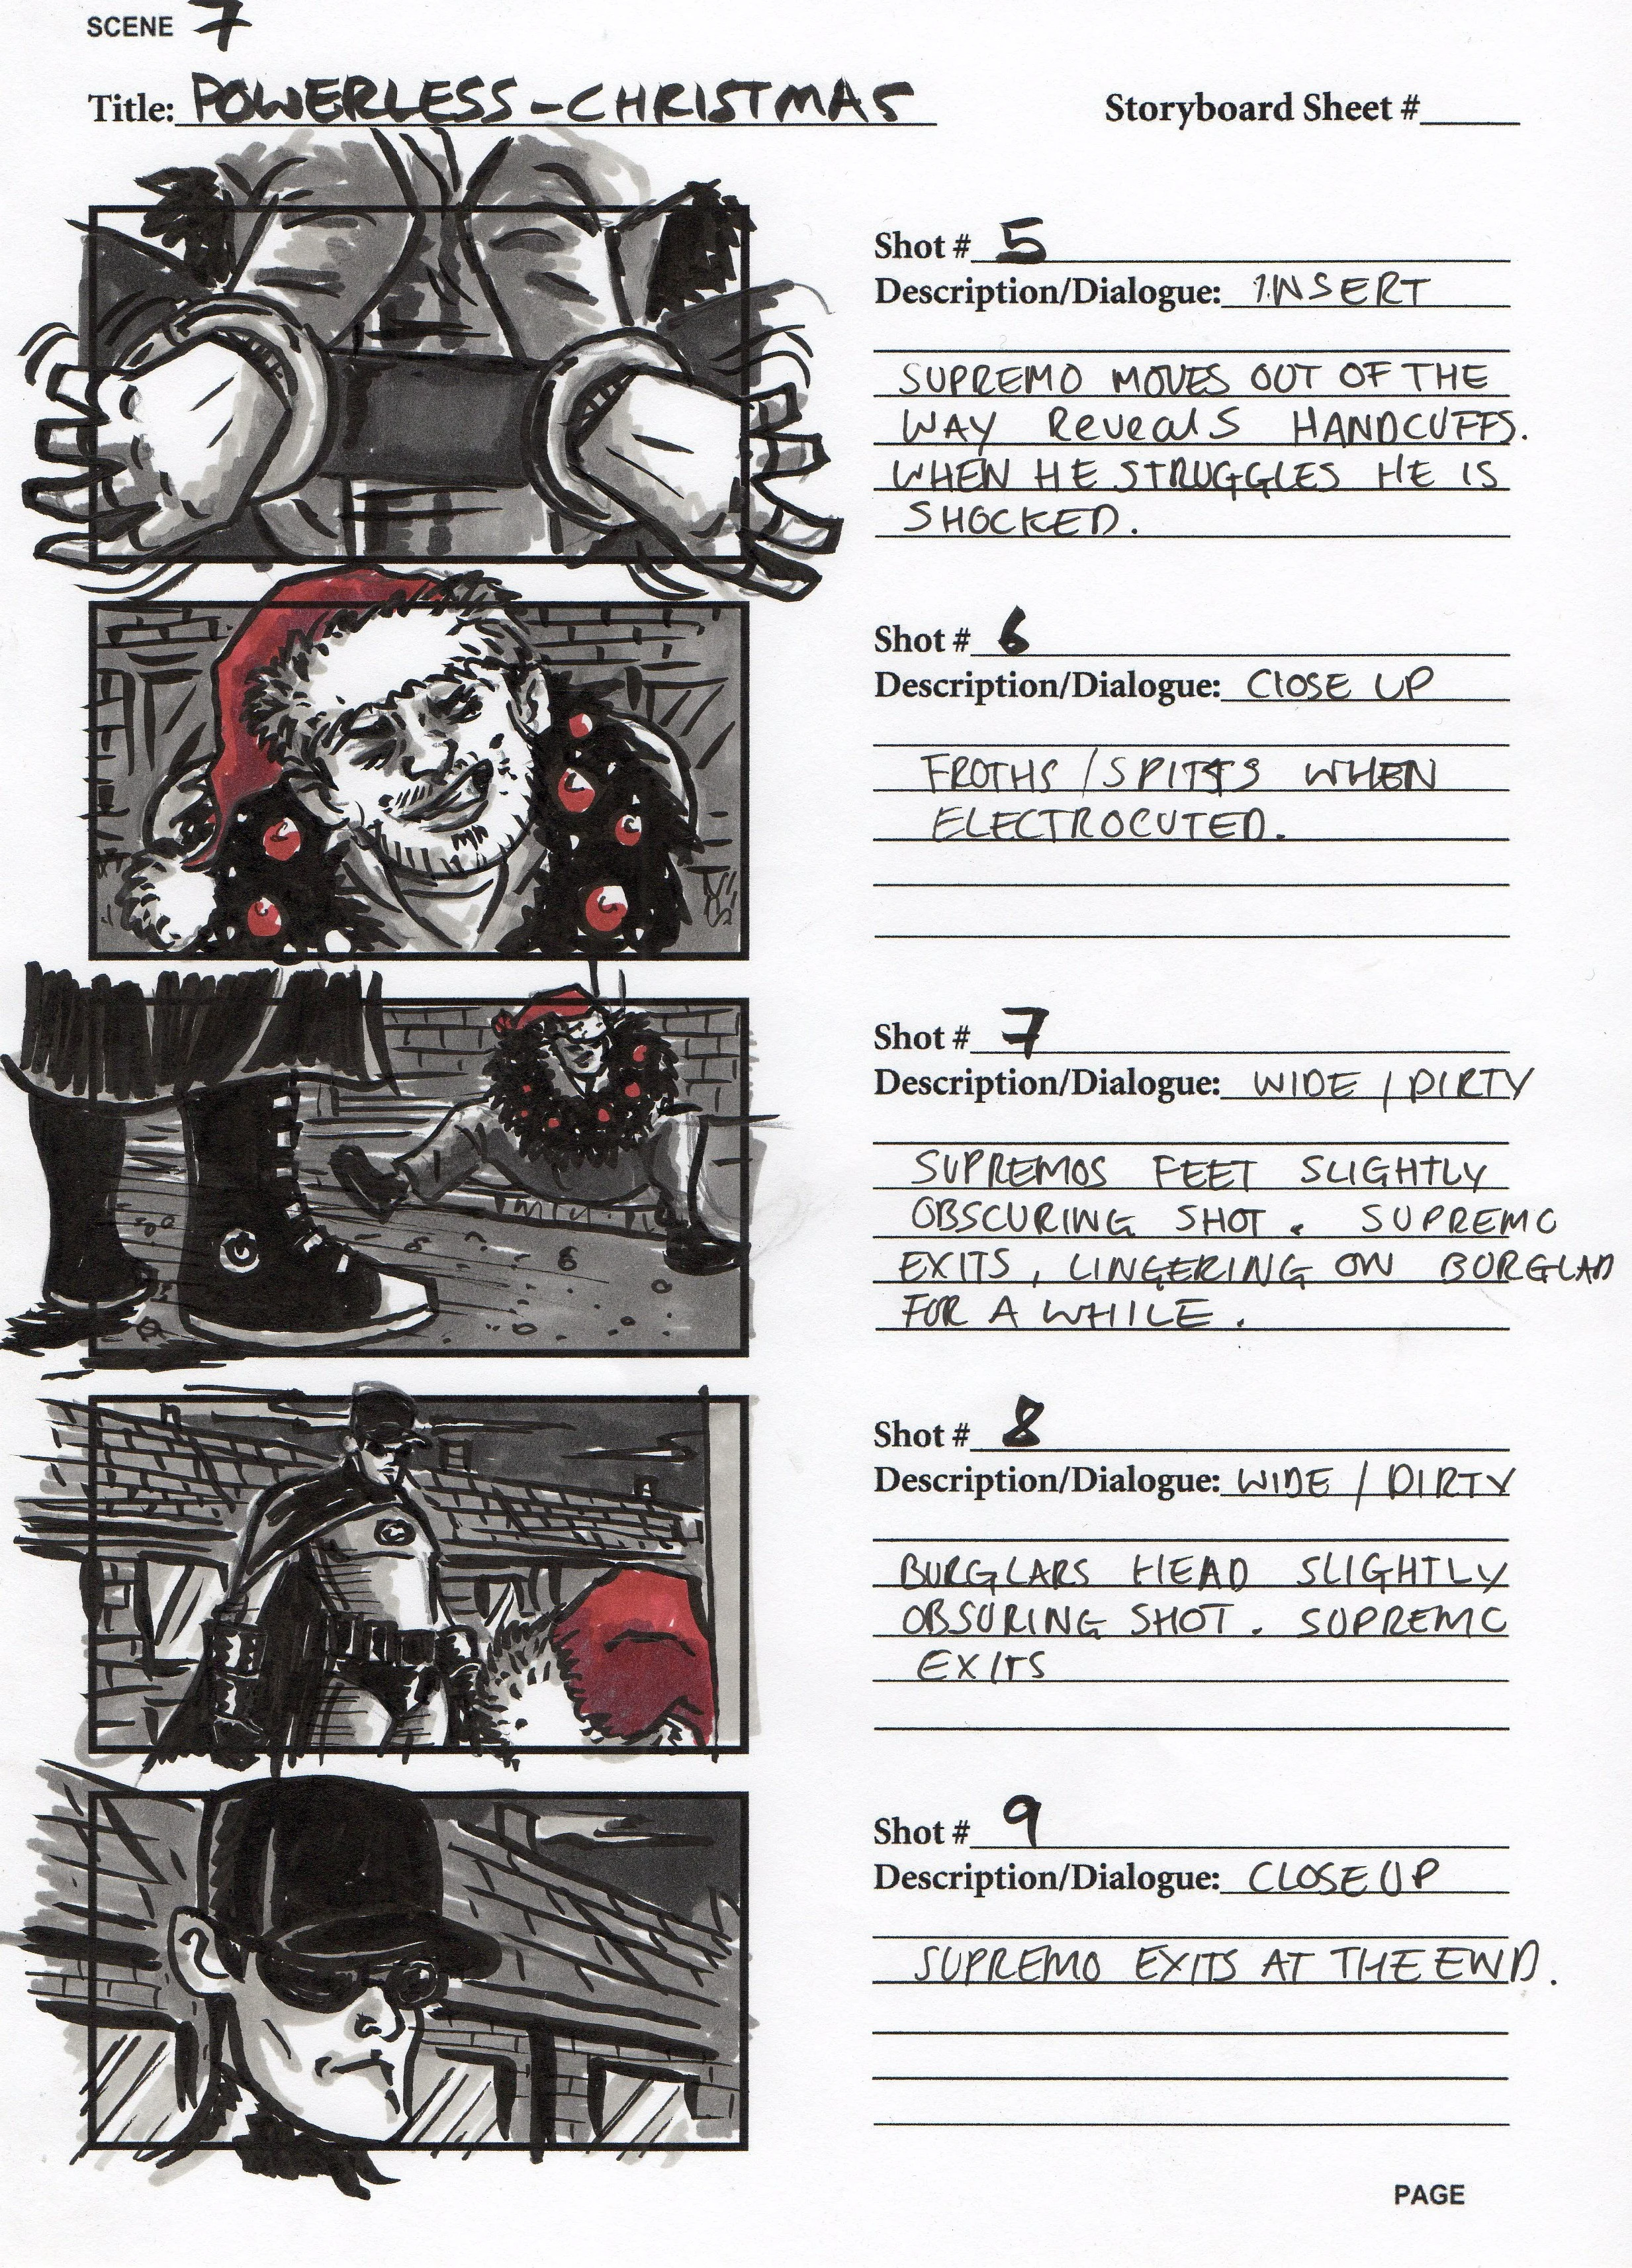 SCENE 7
Title: POWERLESS - CHRISTMAS
Storyboard Sheet #
Shot # 5
Description/Dialogue: INSERT
SUPREMO MOVES OUT OF THE
WAY Reveals HANDCUFFS.
WHEN HE STRUGGLES HE IS
SHOCKED.
Shot # 6
Description/Dialogue: ClOSE UP
FROTHS / SPITS WHEN
ELECTROCUTED.
Shot # 7
Description/Dialogue: WIDE / DIRTY
SUPREMOS FEET SLIGHTLY
OBSCURING SHOT. SUPREMO
EXITS, LINGERING ON BURGLAR
FOR A WHILE.
Shot # 8
Description/Dialogue: WIDE / DIRTY
BURGLARS HEAD SLIGHTLY
OBSURING SHOT. SUPREMO
EXITS
Shot # 9
Description/Dialogue: CLOSE UP
SUPREMO EXITS AT THE END.
PAGE